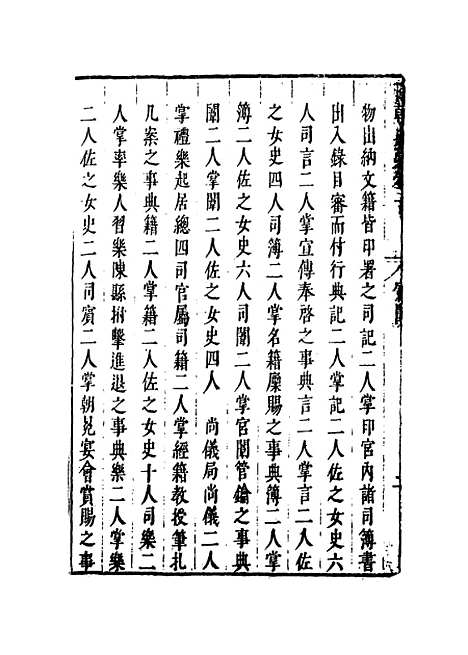 物出納文籍皆印署之司記二人掌印官內諸司簿書
出入錄目審而付行典記二人掌記二人佐之女史六
人司言二人掌宣傳奉啓之事典言二人掌言二人佐
之女史四人司簿二人掌名籍廩賜之事典簿二人掌
簿二人佐之女史六人司闈二人掌官闈管鑰之事典
闈二人掌闈二人佐之女史四人 尚儀局尚儀二人
掌禮樂起居總四司官屬司籍二人掌經籍教授筆札
几案之事典籍二人掌籍二人佐之女史十人司樂二
人掌率樂人習樂陳縣拊擊進退之事典樂二人掌樂
二人佐之女史二人司賓二人掌朝見宴會賞賜之事